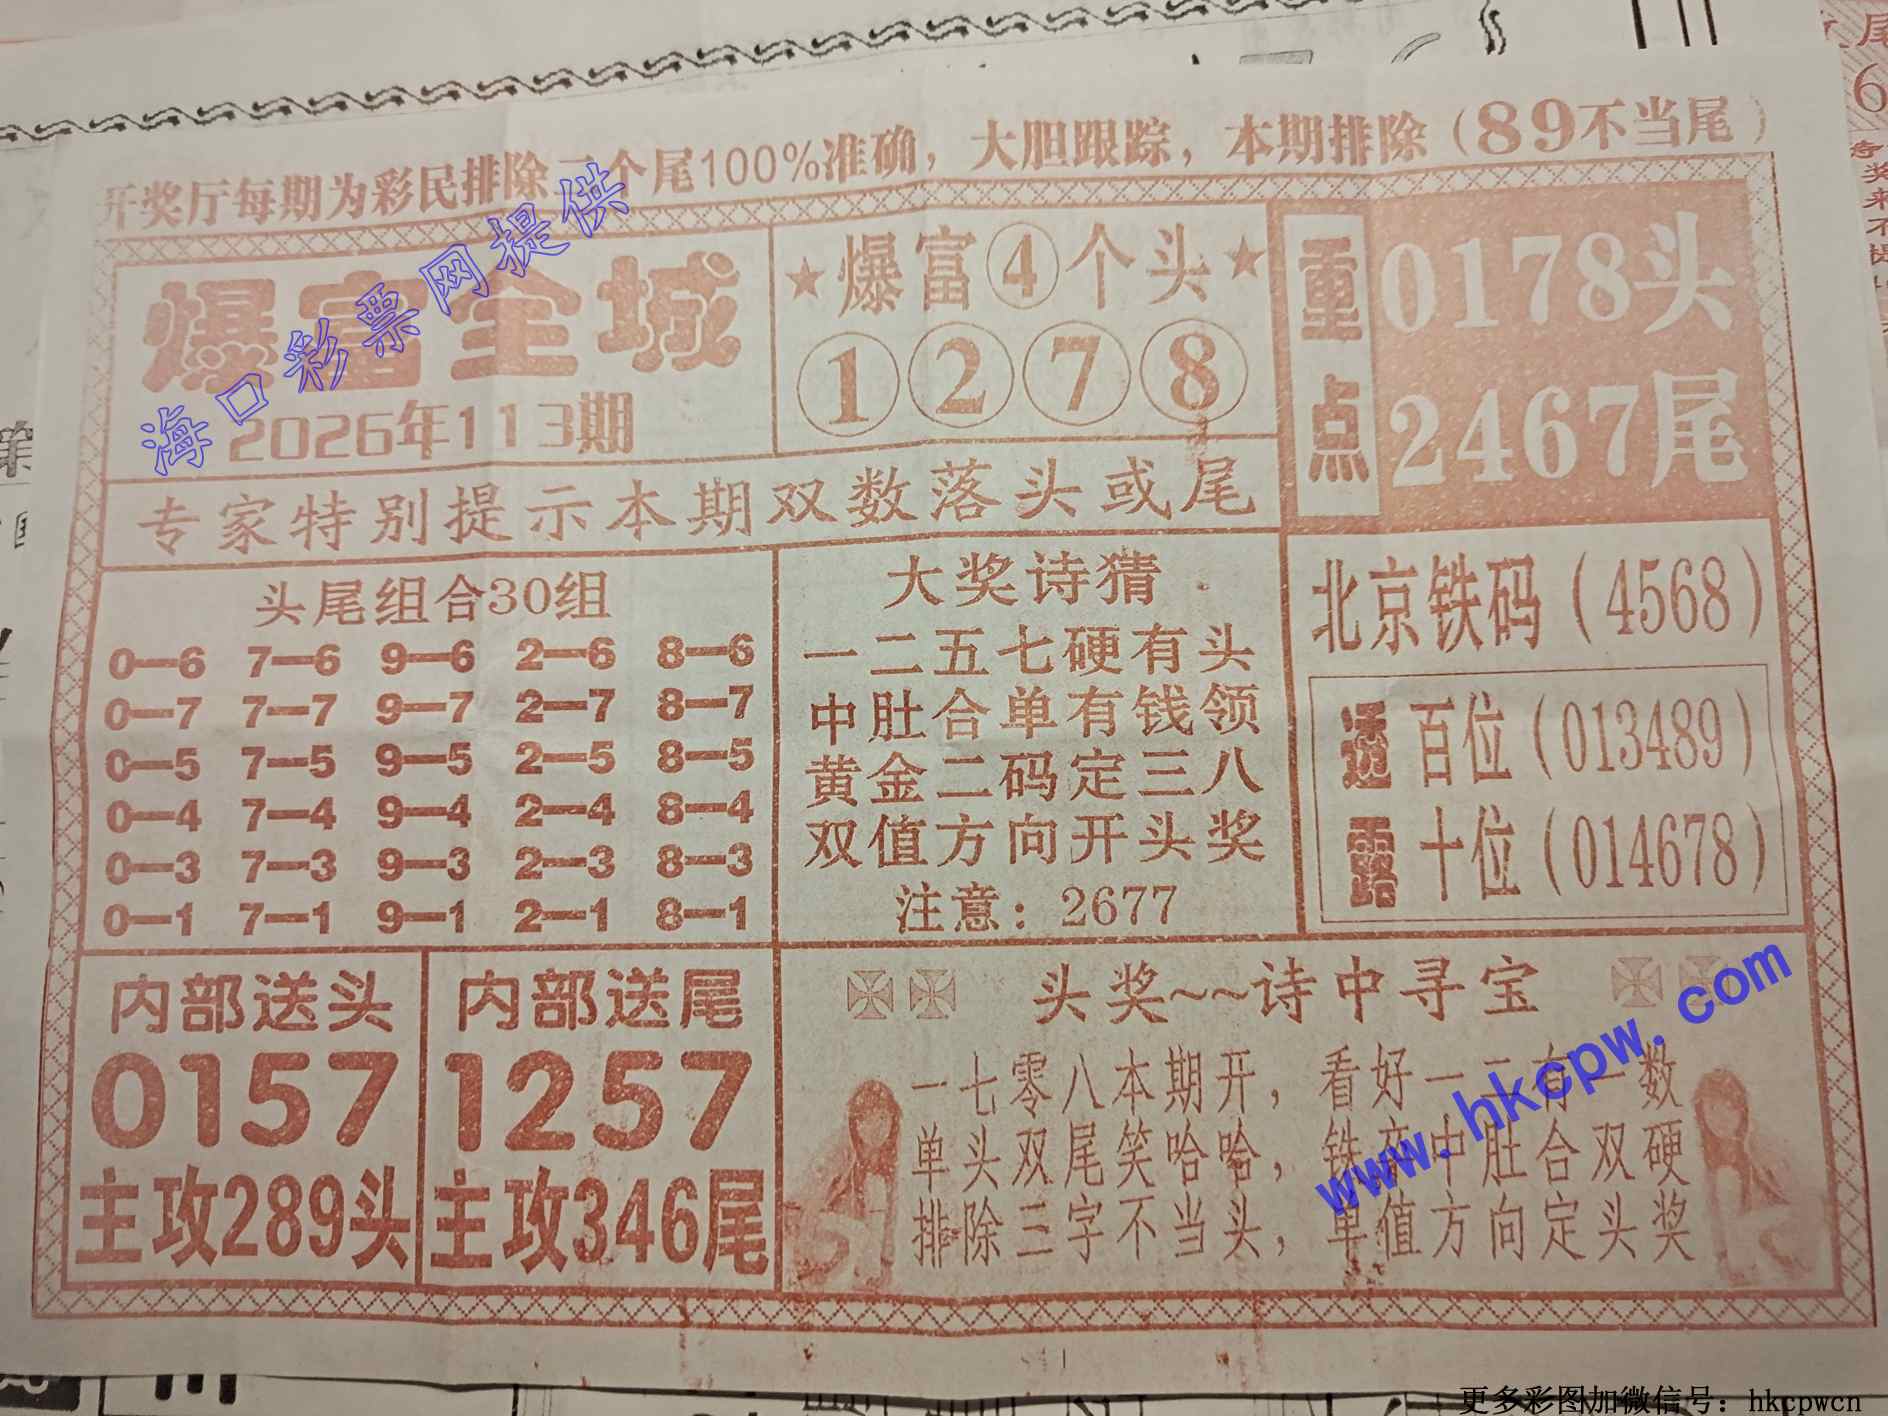 开奖厅每期为彩民排除二个尾100%准确，大胆跟踪，本期排除（89不当尾）
爆富全城
2026年113期
★爆富④个头★
①②⑦⑧
重点
0178头
2467尾
专家特别提示本期双数落头或尾
头尾组合30组
0—6 7—6 9—6 2—6 8—6
0—7 7—7 9—7 2—7 8—7
0—5 7—5 9—5 2—5 8—5
0—4 7—4 9—4 2—4 8—4
0—3 7—3 9—3 2—3 8—3
0—1 7—1 9—1 2—1 8—1
大奖诗猜
一二五七硬有头
中肚合单有钱领
黄金二码定三八
双值方向开头奖
注意：2677
北京铁码（4568）
透露
百位（013489）
十位（014678）
内部送头
0157
主攻289头
内部送尾
1257
主攻346尾
头奖~~诗中寻宝
一七零八本期开，看好一二有一数
单头双尾笑哈哈，铁卒中肚合双硬
排除三字不当头，单值方向定头奖
海口彩票网提供
www.hkcpw.com
更多彩图加微信号：hkcpwcn